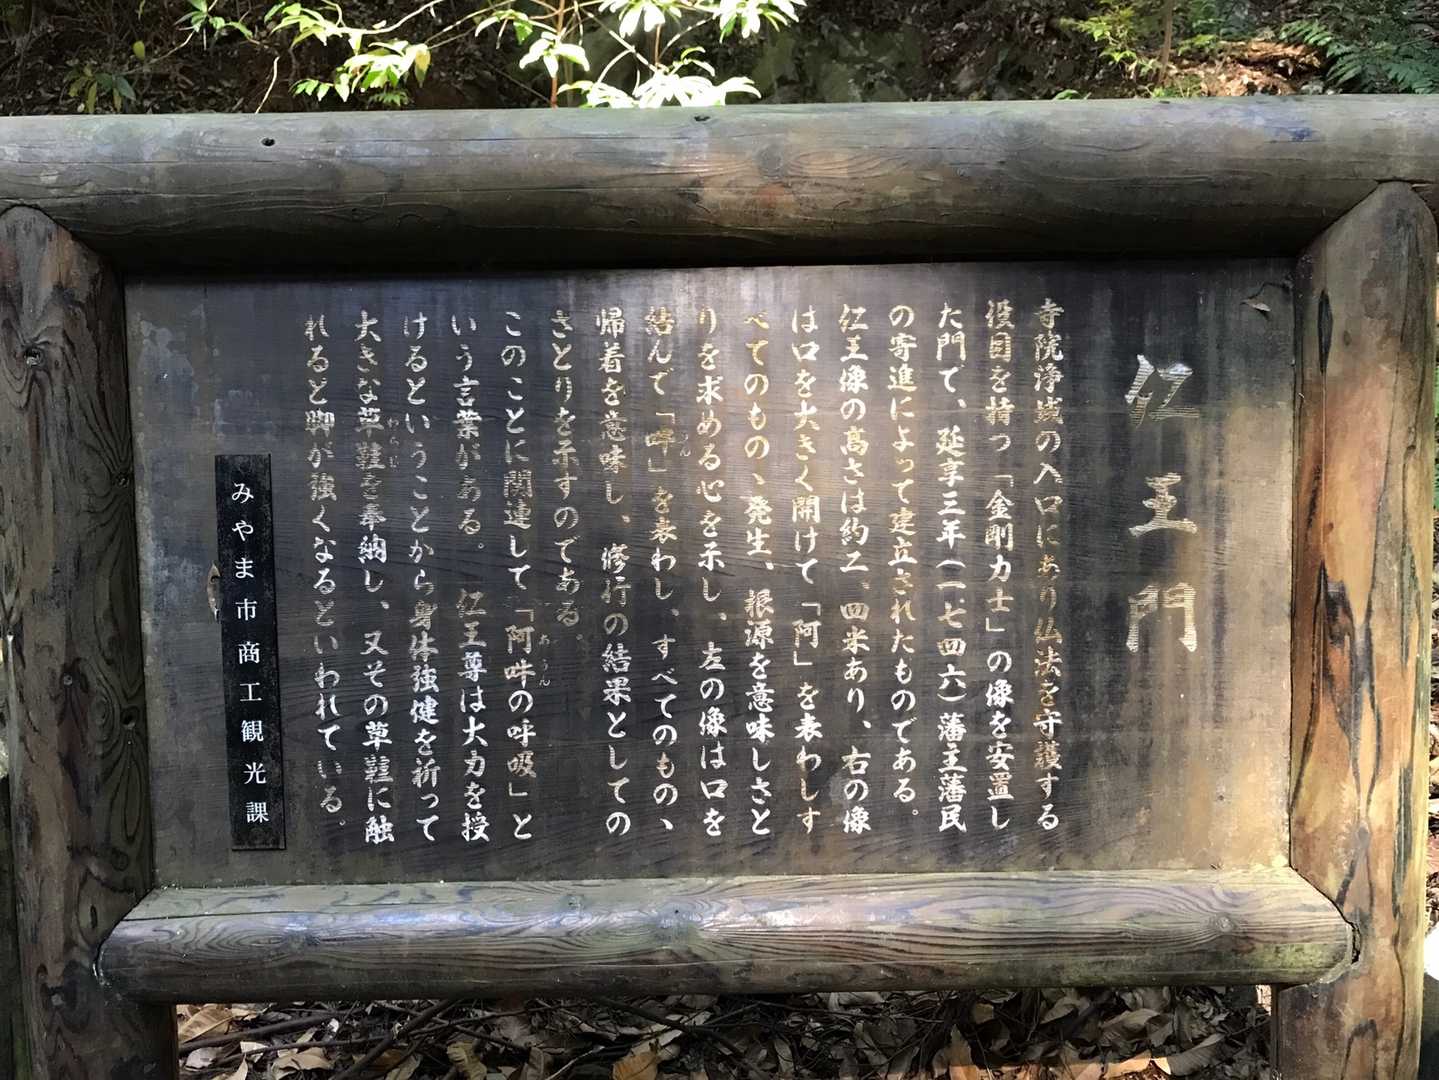 仁王門
寺院浄域の入口にあり仏法を守護する
役目を持つ「金剛力士」の像を安置し
た門で、延享三年(一七四六)藩主藩民
の寄進によって建立されたものである。
仁王像の高さは約二、四米あり、右の像
は口を大きく開けて「阿」を表わしす
べてのもの、発生、根源を意味しさと
りを求める心を示し、左の像は口を
結んで「吽」を表わし、すべてのもの、
うん
帰着を意味し、修行の結果としての
さとりを示すのである。
このことに関連して「阿吽の呼吸」と
あうん
いう言葉がある。仁王尊は大力を授
けるということから身体強健を祈って
大きな草鞋を奉納し、又その草鞋に触
わらじ
れると脚が強くなるといわれている。
みやま市商工観光課